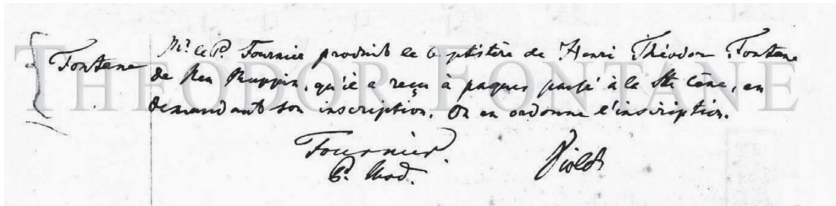 Fontane
Mr. le P. Fournier produit le baptistère de Henri Théodor Fontane
de Neu Ruppin, qu'il a reçu a paques passé à la Ste Cène, en
demandant son inscription. On en ordonne l'inscription.
Fournier.
P. Mod.
THEODOR FONTANE